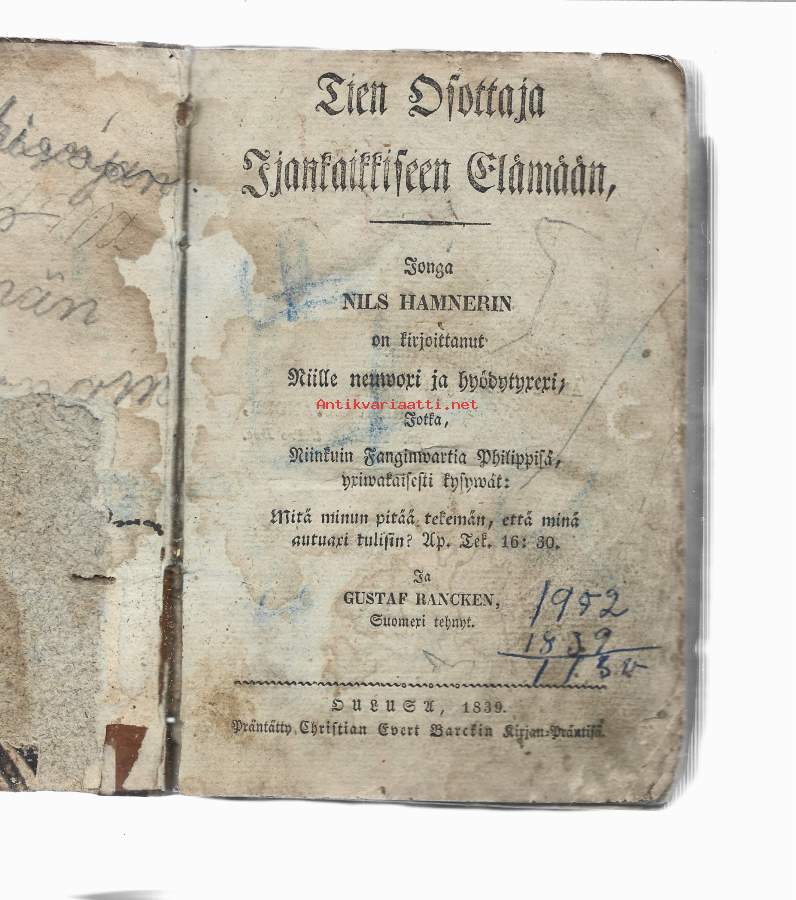 Tien Osottaja
Ijankaikkiseen Elämään,
Jonga
NILS HAMNERIN
on kirjoittanut
Niille neuwoxi ja hyödytyxexi,
Antikvariaatti.net
Jotka,
Niinkuin Fanginwartia Philippisä,
yxiwakaisesti kysywät:
Mitä minun pitää tekemän, että minä
autuaxi tulisin? Ap. Tek. 16: 30.
Ja
GUSTAF RANCKEN,
Suomexi tehnyt.
1952
1839
OULUSA, 1839.
Präntätty Christian Evert Barckin Kirjan-Präntisä.